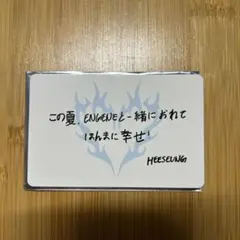 この夏、ENGENEと一緒におれて
ほんまに幸せ!
HEESEUNG